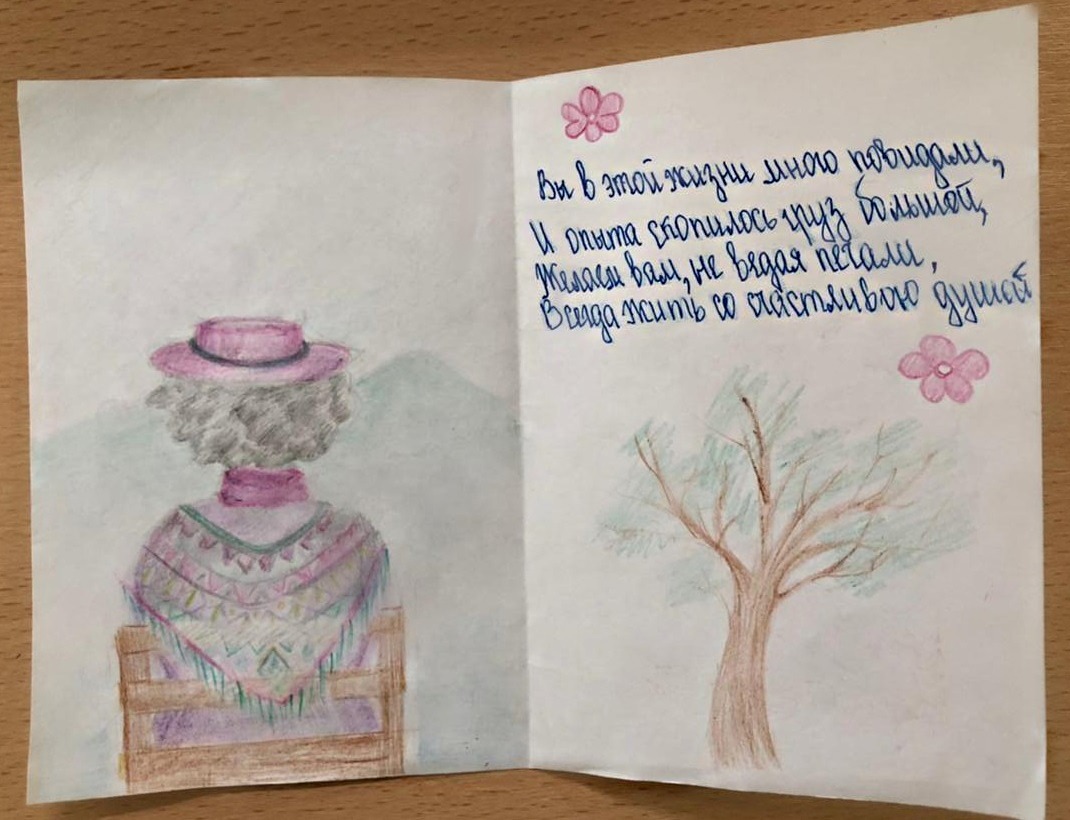 Вы в этой жизни много повидали,
И опыта скопилось груз большой,
Желаем вам, не ведая печали,
Всегда жить со счастливою душой